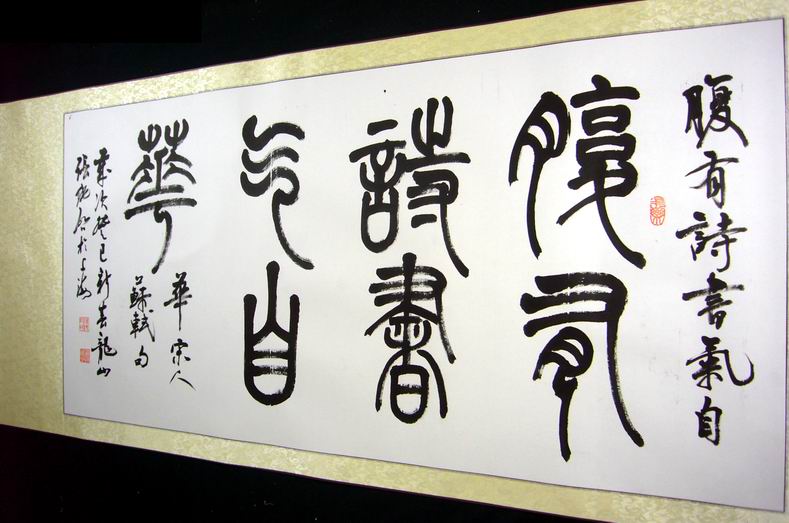 腹有詩書氣自
腹有
詩書
气自
華
華宋人
蘇軾句
歲次癸巳新春龍山
張於上海